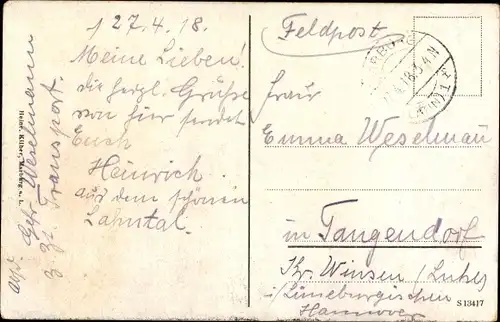 27.4.18.
Meine Lieben!
die herzl. Grüße
von hier sendet
Euch
Heinrich
aus dem schönen
Lahntal.
Abs. Gfr. Weselmann
z. Zt. Transport.
Marburg a. L.
Feldpost
Frau
Emma Weselmann
in Tangendorf
Kr. Winsen (Luhe)
i/Lüneburgischen
Hannover
S 13417